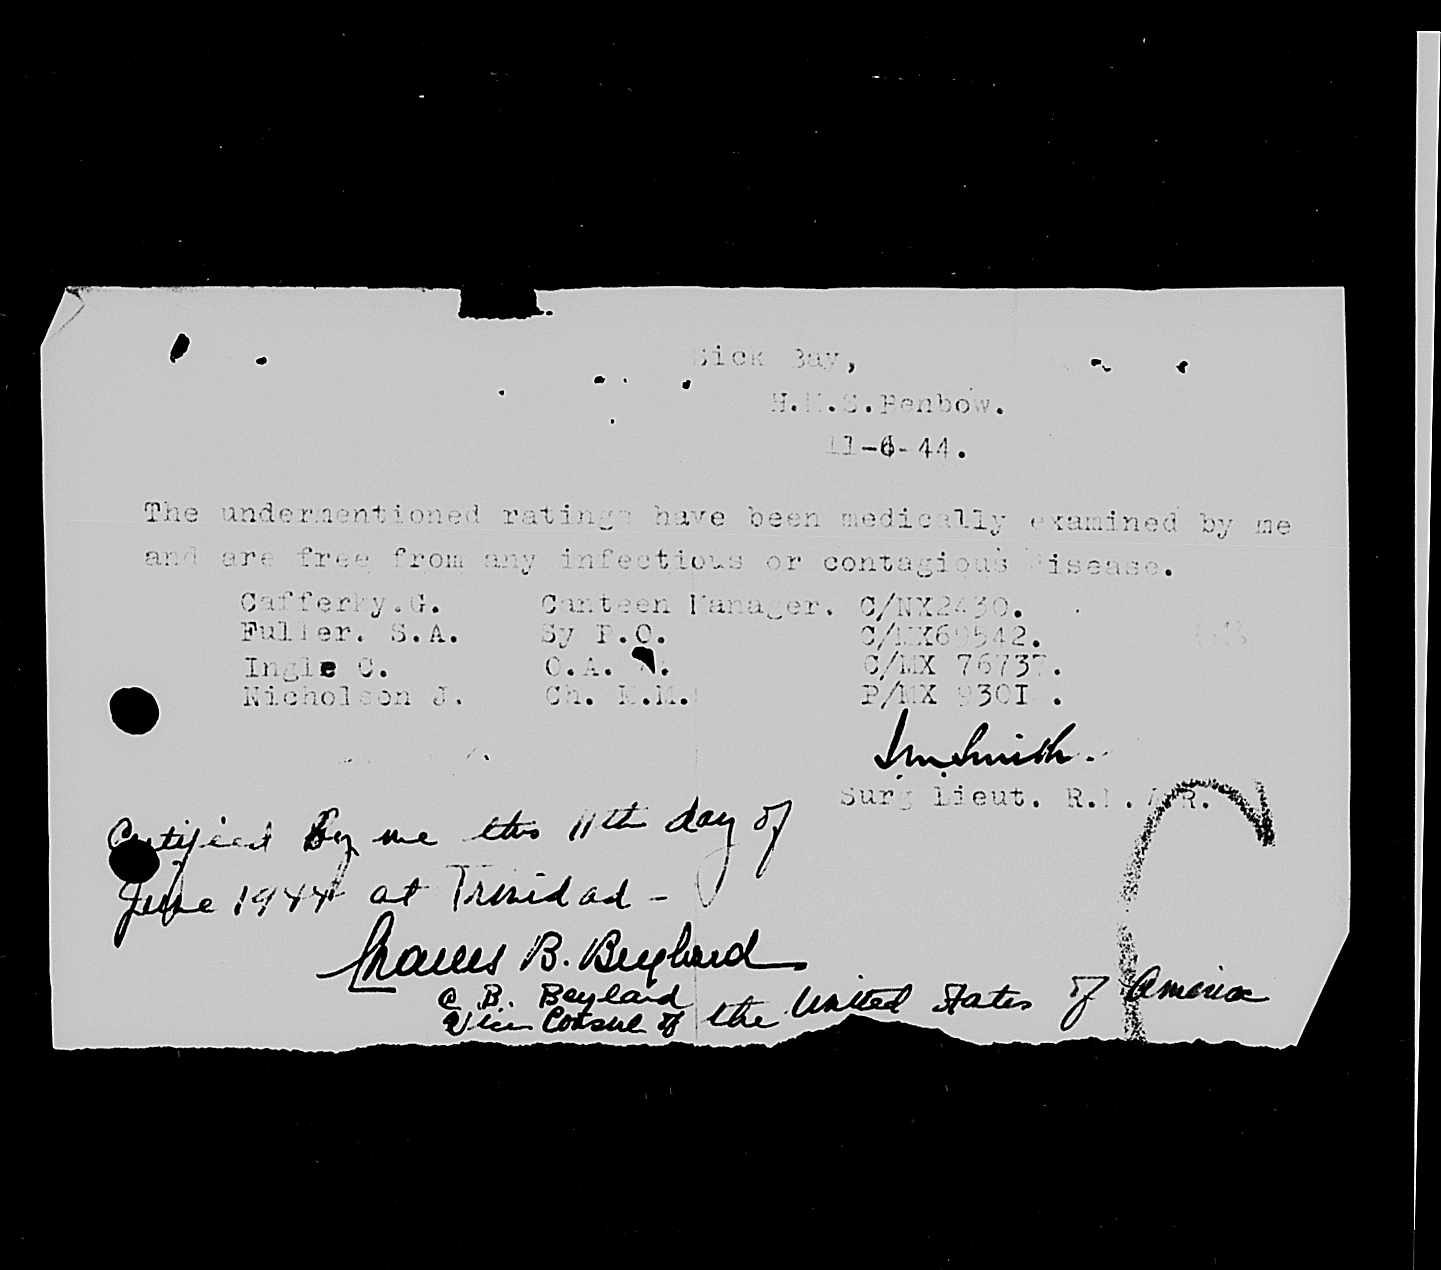 Sick Bay,
H.M.S.Benbow.
11-6-44.
The undermentioned ratings have been medically examined by me
and are free from any infectious or contagious disease.
Cafferky.G. Canteen Manager. C/NX2430.
Fuller. S.A. Sy P.O. C/MX69542.
Ingle C. O.A. C/MX 76737.
Nicholson J. Ch. M.M. P/MX 9301 .
Smith.
Surg Lieut. R.N.V.R.
Certified By me this 11th day of
June 1944 at Trinidad -
Charles B. Beylard
C B. Beylard
Vice Consul of the United States of America